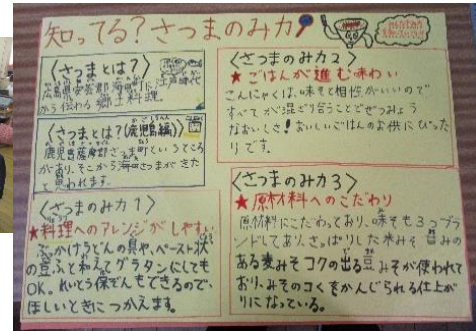 知ってる？さつまのみ力
〈さつまとは？〉
広島県安芸郡海田町に江戸時代
から伝わる郷土料理
〈さつまとは？(鹿児島編)〉
鹿児島薩摩郡さつま町というところ
があり、そこから海田さつまがきた
と言われます。
〈さつまのみ力1〉
★料理へのアレンジがしやすい
ぶっかけうどんの具や、ペースト状
の豆ふと和えてグラタンにしても
OK。れいとう保ぞんもできるので、
ほしいときにつかえます。
〈さつまのみ力2〉
★ごはんが進む味わい
こんにゃくは、味そと相性がいいので
すべてが混ざり合うことでぜつみょう
なおいしさ！おいしいごはんのお供にぴった
りです。
〈さつまのみ力3〉
★原材料へのこだわり
原材料にこだわっており、味そも3つブラ
ンドしてあり、さっぱりした米みそ 甘みの
ある麦みそコクの出る豆みそが使われて
おり、みそのコクをかんじられる仕上が
りになっている。